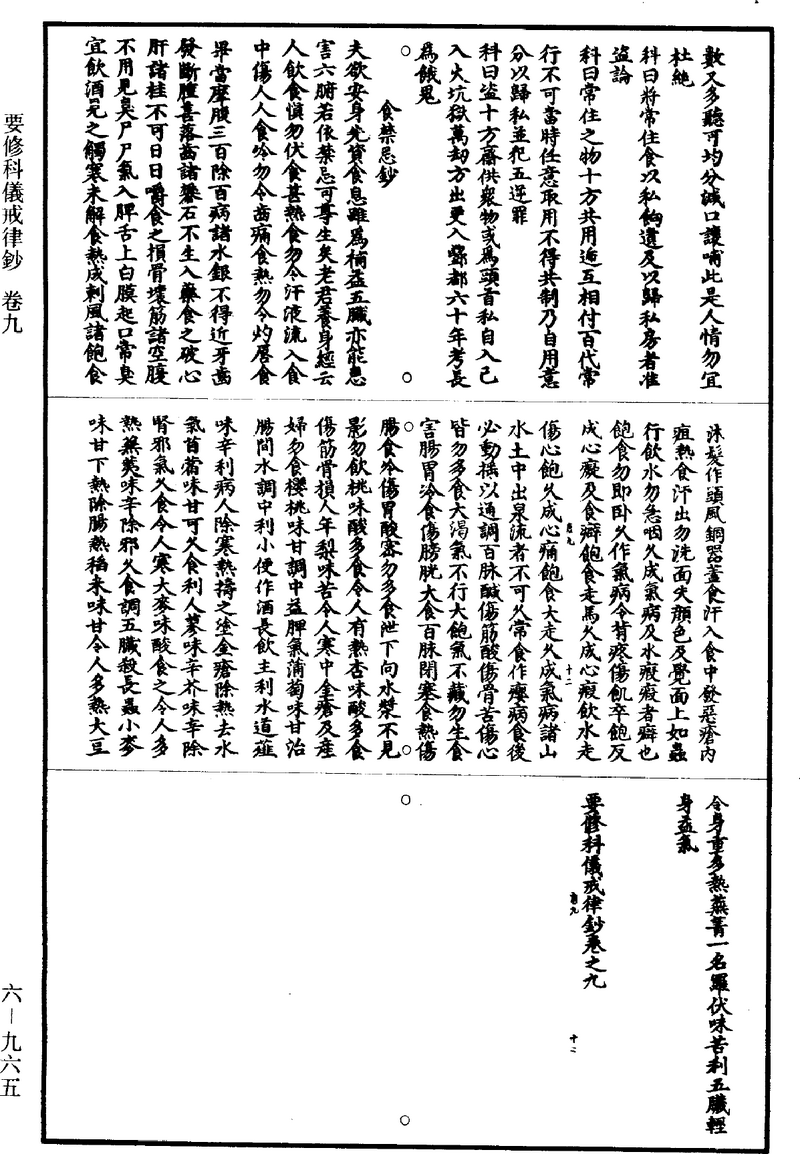 數又多聽可均分緘口讓哺此是人情勿宜
杜絕
科曰將常住食以私餉遺及以歸私房者准
盜論
科曰常住之物十方共用遞互相付百代常
行不可當時任意取用不得共制乃自用意
分以歸私並犯五逆罪
科曰盜十方齋供衆物或為頭首私自入己
入火坑獄萬劫方出更入酆都六十年考長
為餓鬼
食禁忌鈔
夫欲安身先資食息雖為補益五臟亦能患
害六腑若依禁忌可尊生矣老君養身經云
人飲食慎勿伏食甚熱食勿令汗液流入食
中傷人人食冷勿令齒痛食熱勿令灼唇食
畢當摩腹三百除百病諸水銀不得近牙齒
發斷腫喜落齒諸礬石不生入藥食之破心
肝諸桂不可日日嚼食之損骨壞筋諸空腹
不用見臭尸尸氣入脾舌上白膜起口常臭
宜飲酒見之觸寒未解食熱成刺風諸飽食
沐髮作頭風銅器蓋食汗入食中發惡瘡內
疽熱食汗出勿洗面失顏色及覺面上如蟲
行飲水勿急咽久成氣病及水瘕瘕者癖也
飽食勿即臥久作氣病令背疼傷飢卒飽反
成心癡及食癖飽食走馬久成心瘕飲水走
傷心飽久成心痛飽食大走久成氣病諸山
水土中出泉流者不可久常食作癭病食後
必動搖以通調百脉鹹傷筋酸傷骨苦傷心
皆勿多食大渴氣不行大飽氣不藏勿生食
害腸胃冷食傷膀胱大食百脉閉塞食熱傷
腸食冷傷胃酸漿勿多食泄下向水漿不見
影勿飲桃味酸多食令人有熱杏味酸多食
傷筋骨損人年梨味苦令人寒中金瘡及産
婦勿食櫻桃味甘調中益脾氣蒲萄味甘治
腸間水調中利小便作酒長飲主利水道薤
味辛利病人除寒熱擣之塗金瘡除熱去水
氣苜蓿味甘可久食利人蓼味辛芥味辛除
腎邪氣久食令人寒大麥味酸食之令人多
熱蕪荑味辛除邪久食調五臟殺長蟲小麥
味甘下熱除腸熱稻米味甘令人多熱大豆
令身重多熱蕪菁一名羅伏味苦利五臟輕
身益氣
要修科儀戒律鈔卷之九
要修科儀戒律鈔 卷九
六－九六五